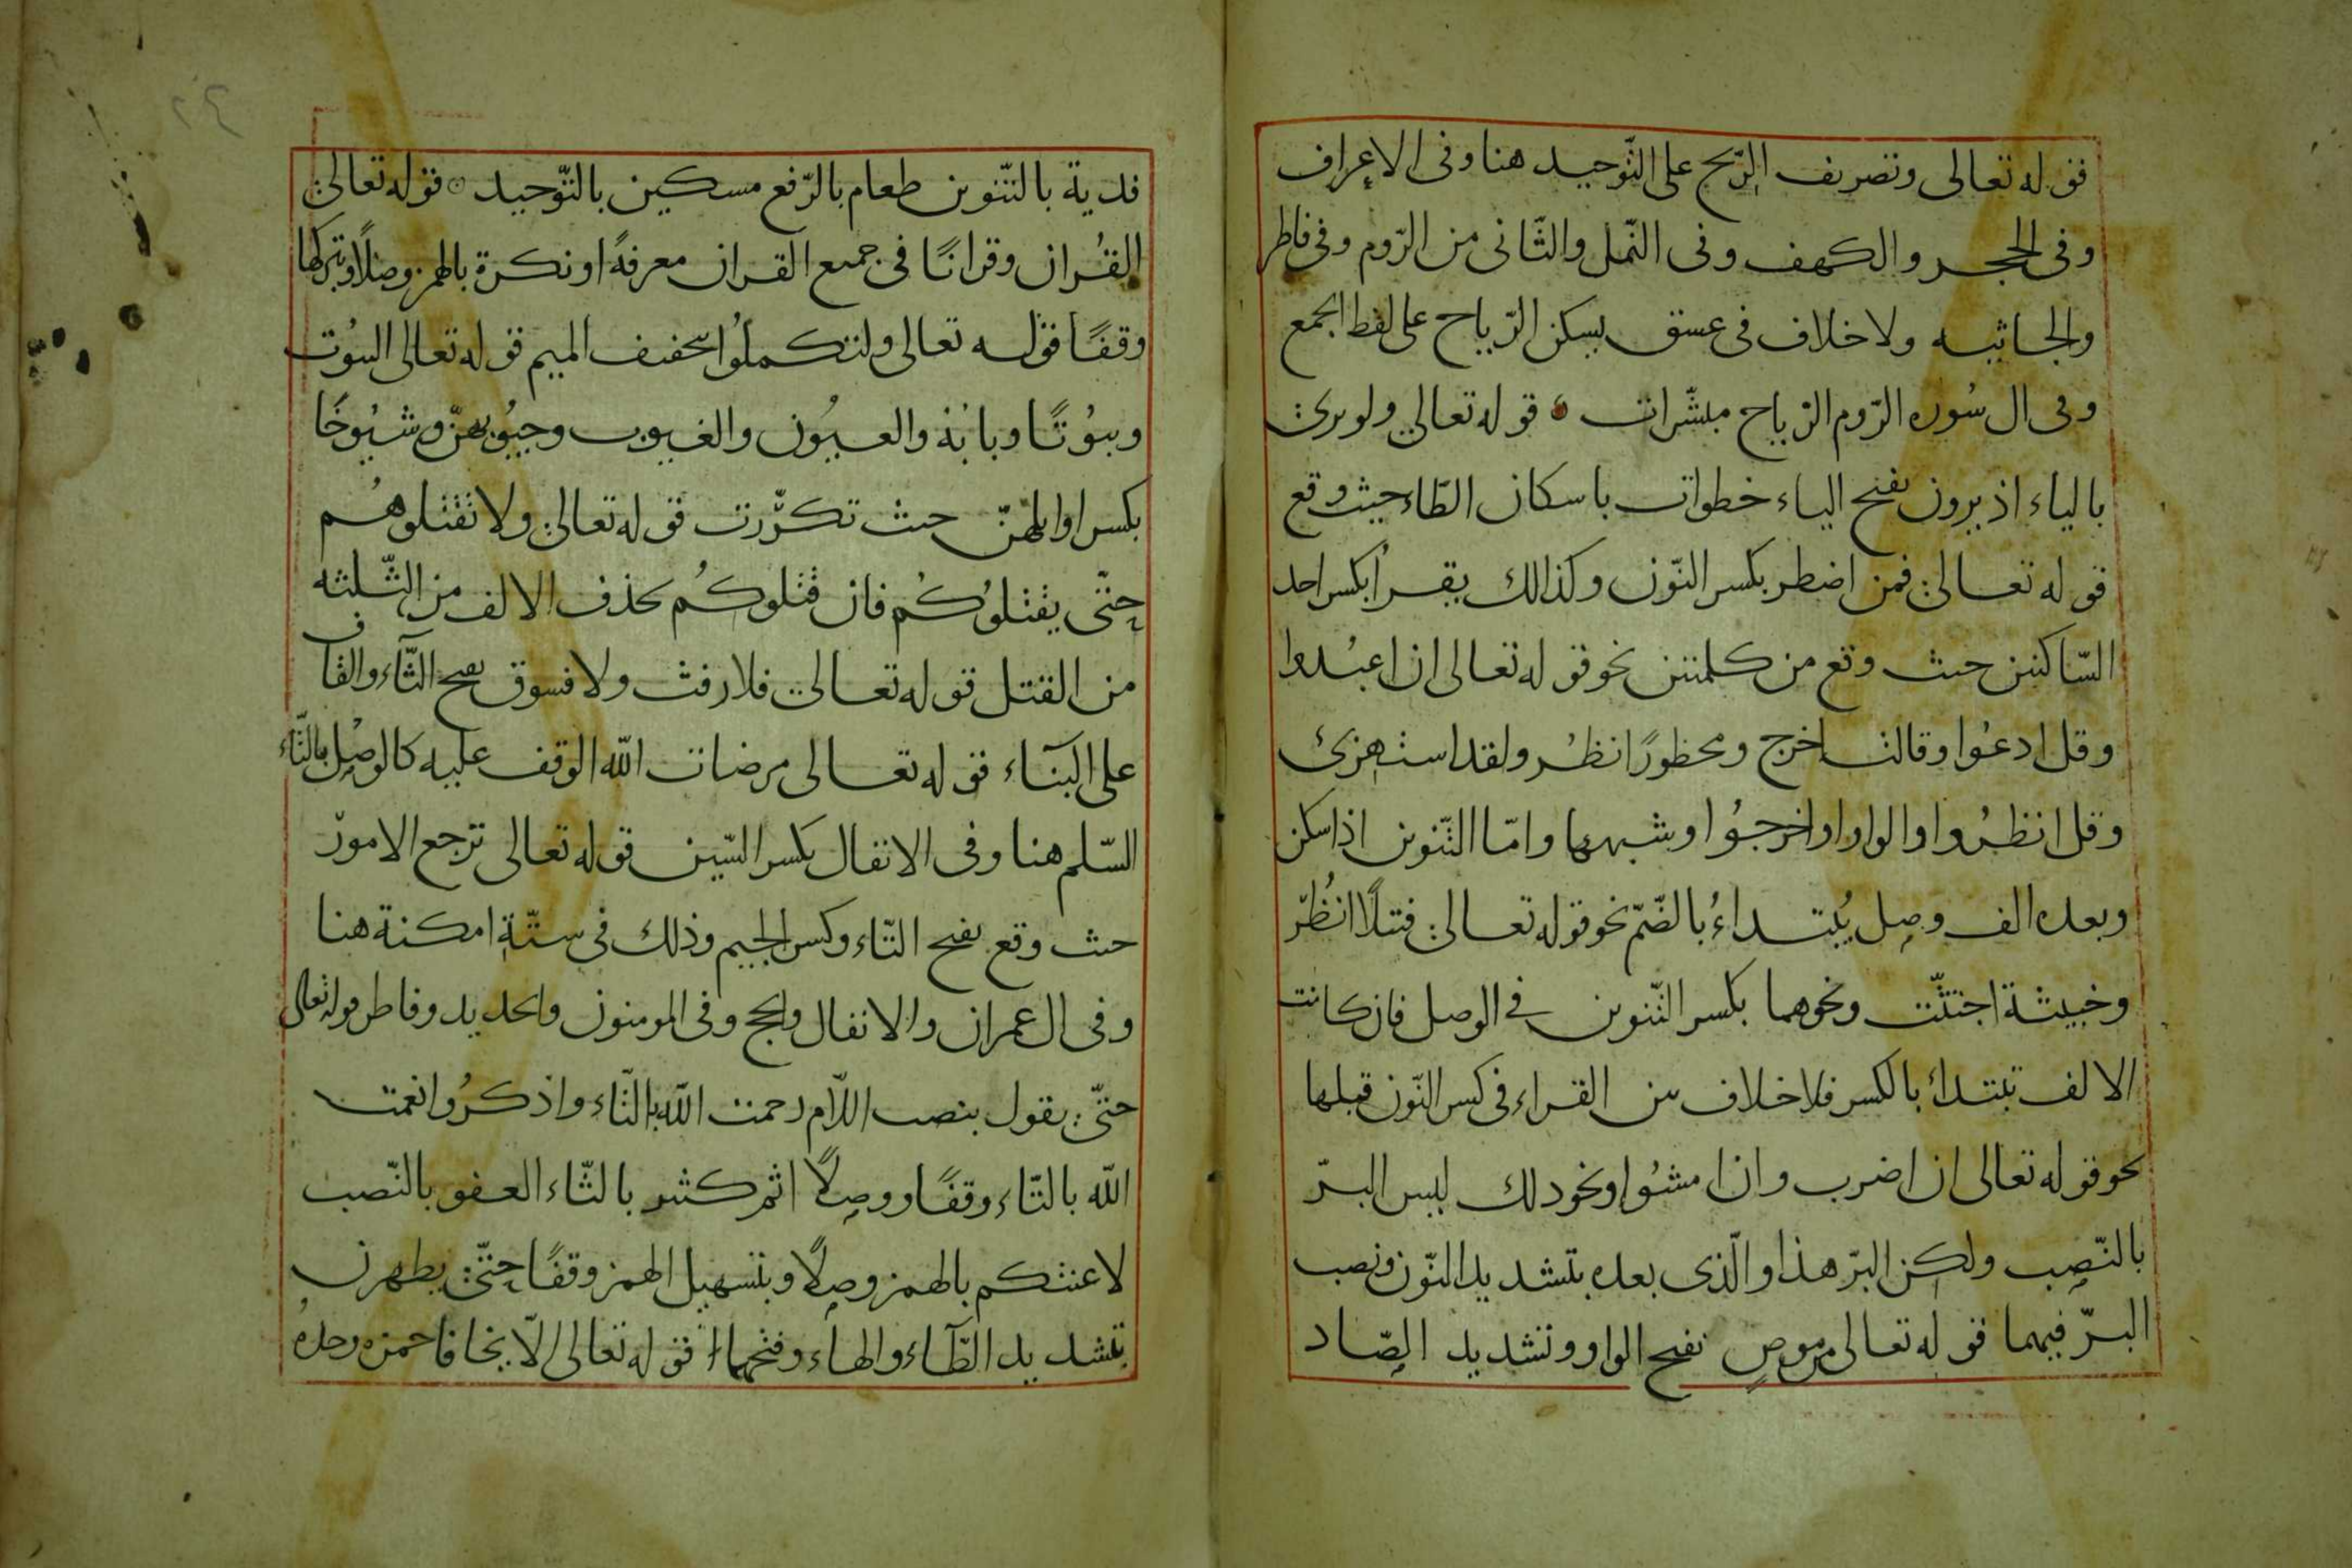 قوله تعالى وتصريف الرّيح على التّوحيد هنا وفى الاعراف
وفى الحجر والكهف وفى النّمل والثّانى من الرّوم وفى فاطر
والجاثيه ولا خلاف فى عسق يسكن الرّياح على لفظ الجمع
وفى ال سُوره الرّوم الرّياح مبشّرات قوله تعالى ولو يرى
بالياء اذ يرون بفتح الياء خطوات باسكان الطّاء حيث وقع
قوله تعالى فمن اضطر بكسر النّون وكذالك يقرأ بكسر احد
السّاكنين حيث وقع من كلمتين نحو قوله تعالى ان اعبُدوا
وقل ادعُوا وقالت اخرج ومحظورًا انظُر ولقد استهزئ
وقل انظُروا والواو او اخرجُوا وشبهها وامّا التّنوين اذا سكن
وبعده الف وصِل يُبتداءُ بالضّمّ نحو قوله تعالى فتيلًا انُظُرّ
وخبيثة اجتثّت ونحوهما بكسر التّنوين فى الوصل فان كانت
الالف تبتدأ بالكسر فلا خلاف بين القراء فى كسر النّون قبلها
نحو قوله تعالى ان اضرب وان امشُوا ونحو ذلك ليس البرّ
بالنّصِب ولكن البرّ هذا والّذى بعده بتشديد النّون ونصب
البرّ فيهما قوله تعالى من موصٍ بفتح الواو وتشديد الصّاد
٢٤
فدية بالتّنوين طعام بالرّفع مسكين بالتّوحيد قوله تعالى
القُران وقرانًا فى جميع القران معرفةً او نكرة بالهمز وصلًا وبتركها
وقفًا قوله تعالى ولتكملُوا بتخفيف الميم قوله تعالى البيُوت
وبيُوتًا وبابُه والعيُون والغيوب وجيُوبهنّ وشيُوخًا
بكسر اوايلهنّ حيث تكرّرت قوله تعالى ولا تقتلوهُم
حتّى يقتلُوكُم فان قتلوكُم بحذف الالف من الثّلثه
من القتل قوله تعالى فلا رفث ولا فسوق بفتح الثّآء والقاف
على البنآء قوله تعالى مرضات الله الوقف عليه كالوصِل بالتّاء
السّلم هنا وفى الانفال بكسر السّين قوله تعالى ترجع الامورّ
حيث وقع بفتح التّاء وكسر الجيم وذلك فى ستّةِ امكنة هنا
وفى ال عمران والانفال والحج وفى المومنون والحديد وفاطر قوله تعالى
حتّى يقول بنصب اللّام رحمت الله بالتّاء واذكرُوا نعمت
الله بالتّاء وقفًا ووصِلًا اثم كثير بالثّاء العفو بالنّصب
لاعنتكم بالهمز وصِلًا وبتسهيل الهمز وقفًا حتّى يطهرن
بتشديد الطّآء والهاء وفتحهما قوله تعالى الّا يخافا حمزه وحدهُ